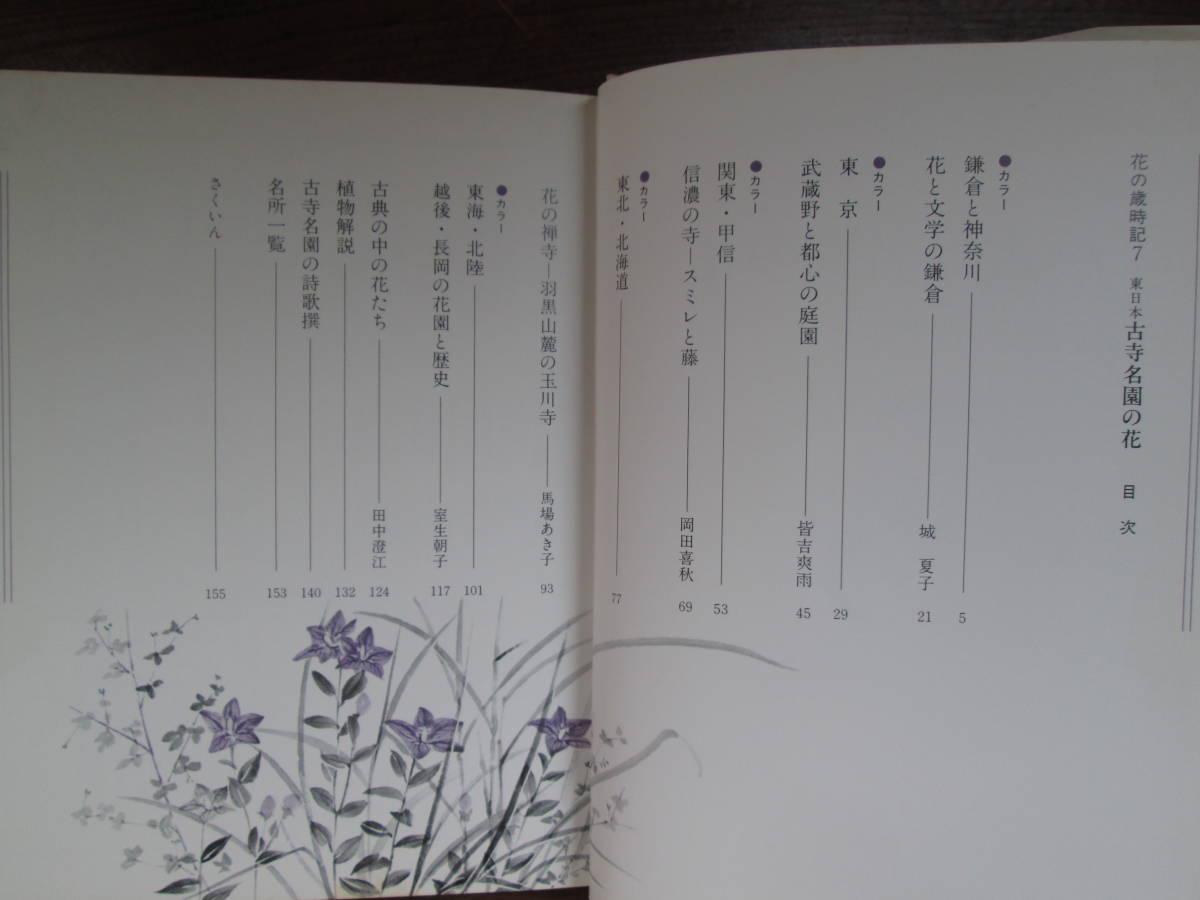 花の歳時記7 東日本 古寺名園の花 目次
●カラー
鎌倉と神奈川 5
花と文学の鎌倉 城 夏子 21
●カラー
東京 29
武蔵野と都心の庭園 皆吉爽雨 45
●カラー
関東・甲信 53
信濃の寺―スミレと藤 岡田喜秋 69
●カラー
東北・北海道 77
花の禅寺―羽黒山麓の玉川寺 馬場あき子 93
●カラー
東海・北陸 101
越後・長岡の花園と歴史 室生朝子 117
古典の中の花たち 田中澄江 124
植物解説 132
古寺名園の詩歌撰 140
名所一覧 153
さくいん 155